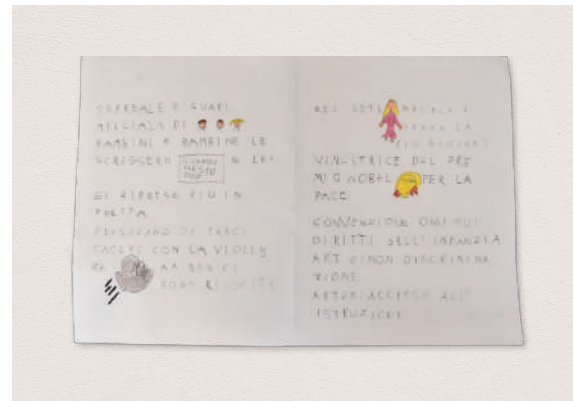 OSPEDALE E QUASI
MIGLIAIA DI
BAMBINI E BAMBINE LE
SCRISSERO GUARISCI PRESTO N LEI
SI RIPRESE PIU IN
FRETTA
PENSAVANO DI FARCI
TACERE CON LA VIOLEN
ZA MA NON CI
SONO RIUSCITI
NEL 2014 MALALA È
LA
PIÙ GIOVANE
VINCITRICE DEL PRE
MIO NOBEL PER LA
PACE
CONVENZIONE ONU SUI
DIRITTI DELL'INFANZIA
ART 2: NON DISCRIMINA
ZIONE
ART 28: ACCESSO ALL'
ISTRUZIONE